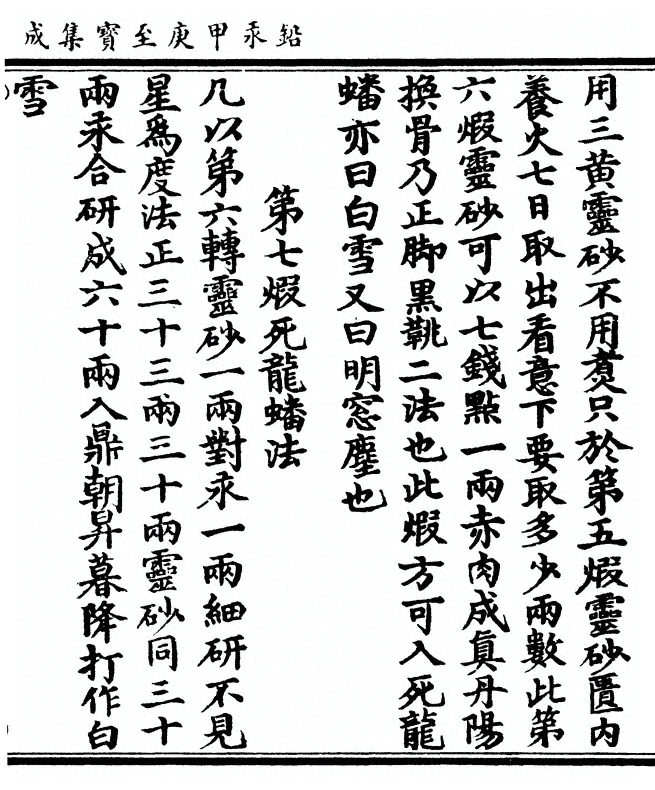 鉛汞甲庚至寶集成
用三黄靈砂不用煑只於第五煆靈砂匱内
養火七日取出看意下要取多少兩數此第
六煆靈砂可以七錢點一兩赤肉成眞丹陽
換骨乃正脚黒靴二法也此煆方可入死龍
蟠亦曰白雪又曰明窓塵也
第七煆死龍蟠法
凡以第六轉靈砂一兩對汞一兩細研不見
星爲度法正三十三兩三十兩靈砂同三十
兩汞合研成六十兩入鼎朝昇暮降打作白
雪